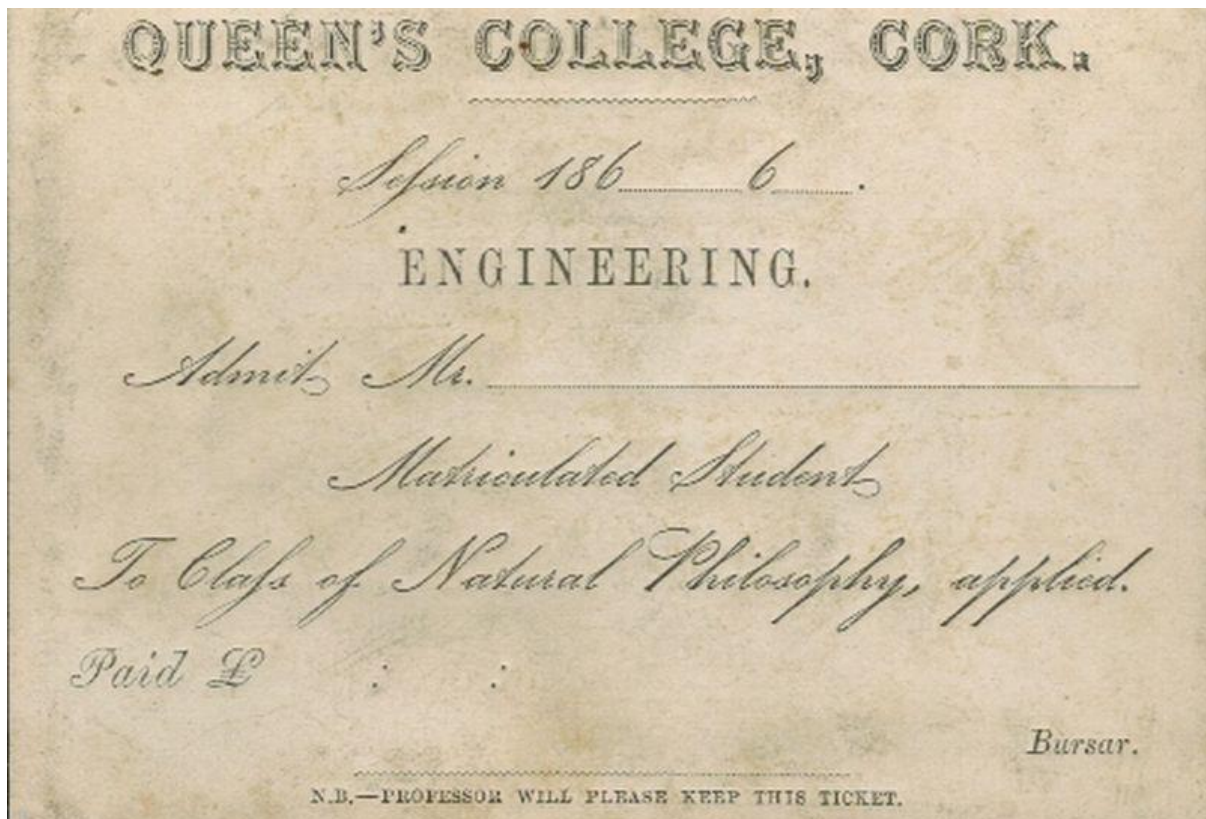 QUEEN'S COLLEGE, CORK.
Seſsion 186 6 .
ENGINEERING.
Admit Mr.
Matriculated Student
To Claſs of Natural Philosophy, applied.
Paid £ : :
Bursar.
N.B.—PROFESSOR WILL PLEASE KEEP THIS TICKET.